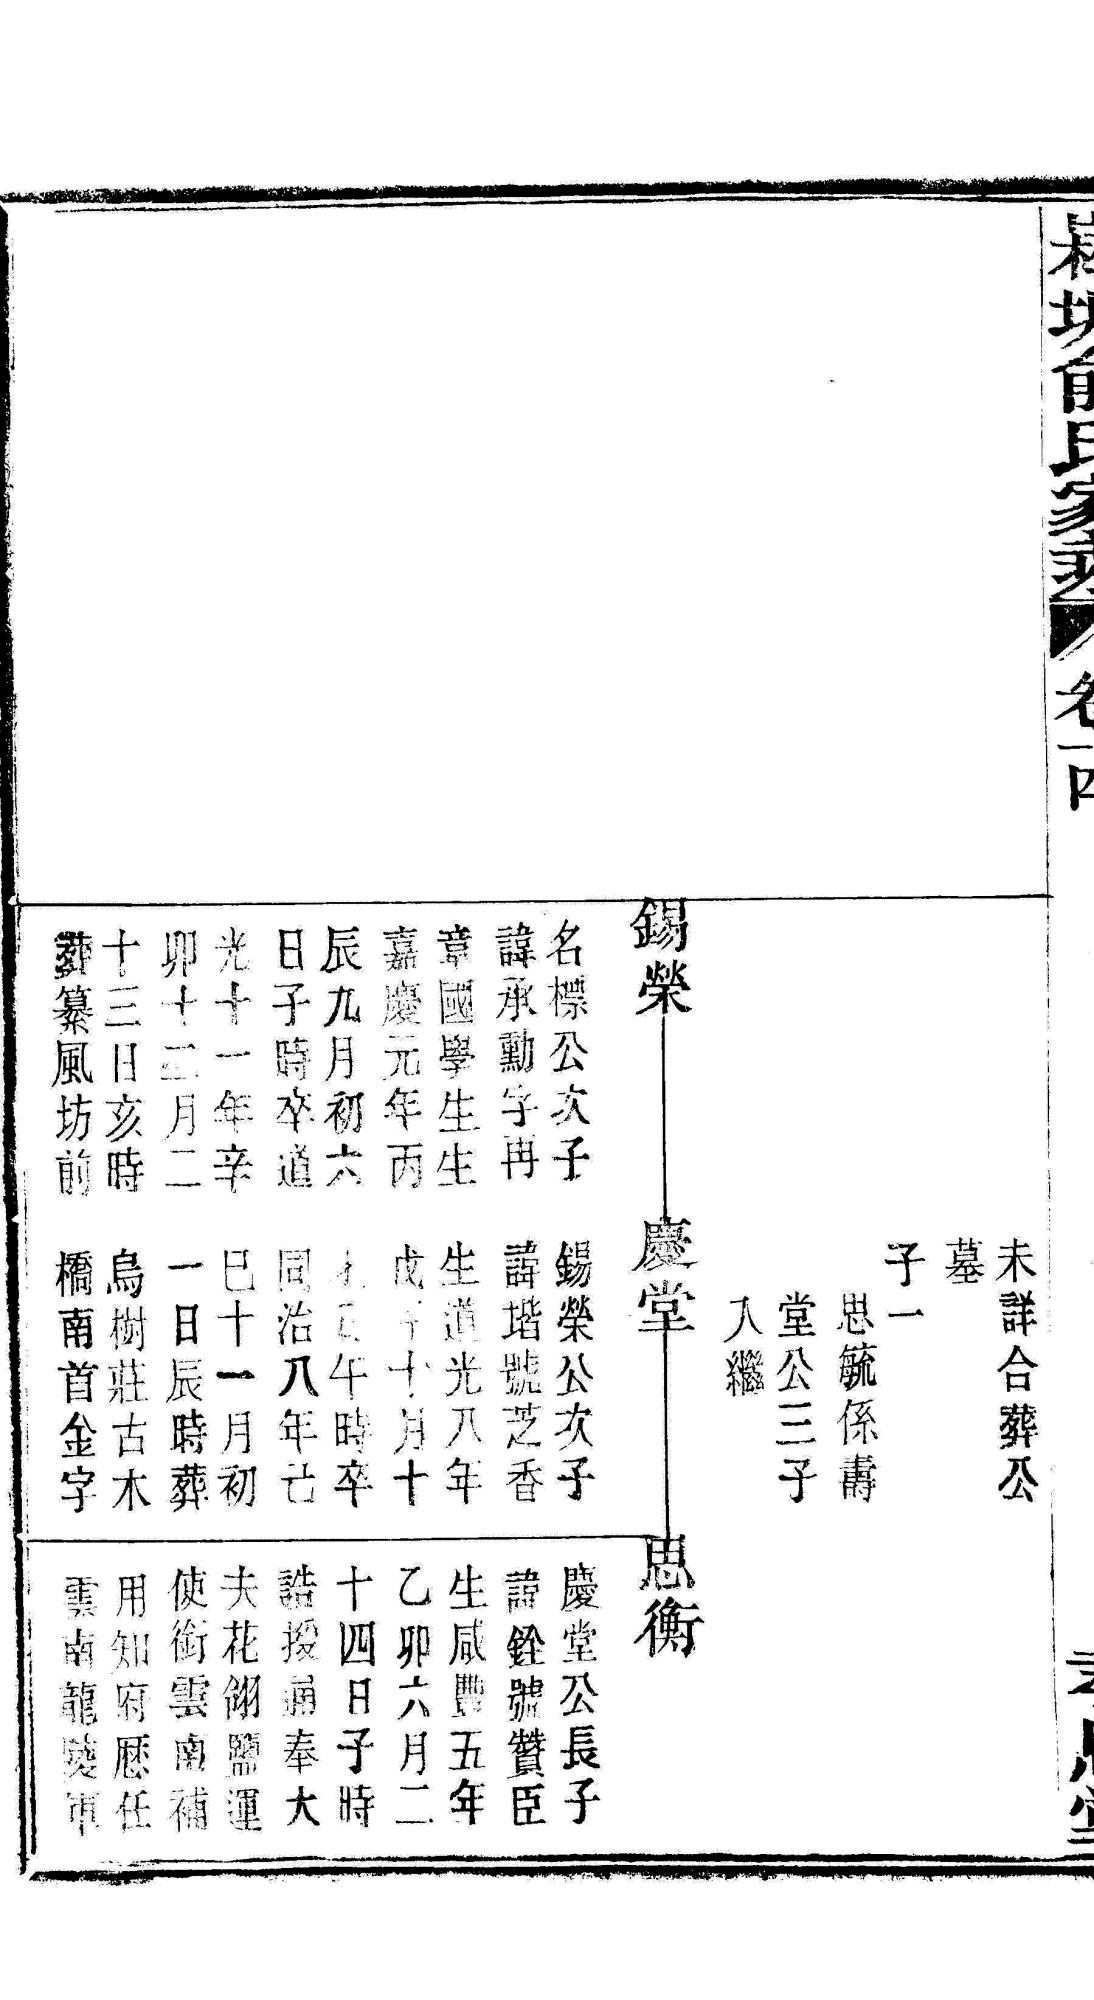 俞氏家乘
卷十四
未詳合葬公
墓
子一
思毓係壽
堂公三子
入繼
錫榮
慶堂
思衡
名標公次子
諱承勳字冉
章國學生生
嘉慶元年丙
辰九月初六
日子時卒道
光十一年辛
卯十二月二
十三日亥時
葬纂風坊前
錫榮公次子
諱堦號芝香
生道光八年
戊子十月十
午時卒
同治八年己
巳十一月初
一日辰時葬
烏樹莊古木
橋南首金字
慶堂公長子
諱銓號贊臣
生咸豐五年
乙卯六月二
十四日子時
誥授通奉大
夫花翎鹽運
使銜雲南補
用知府歷任
雲南龍陵軍